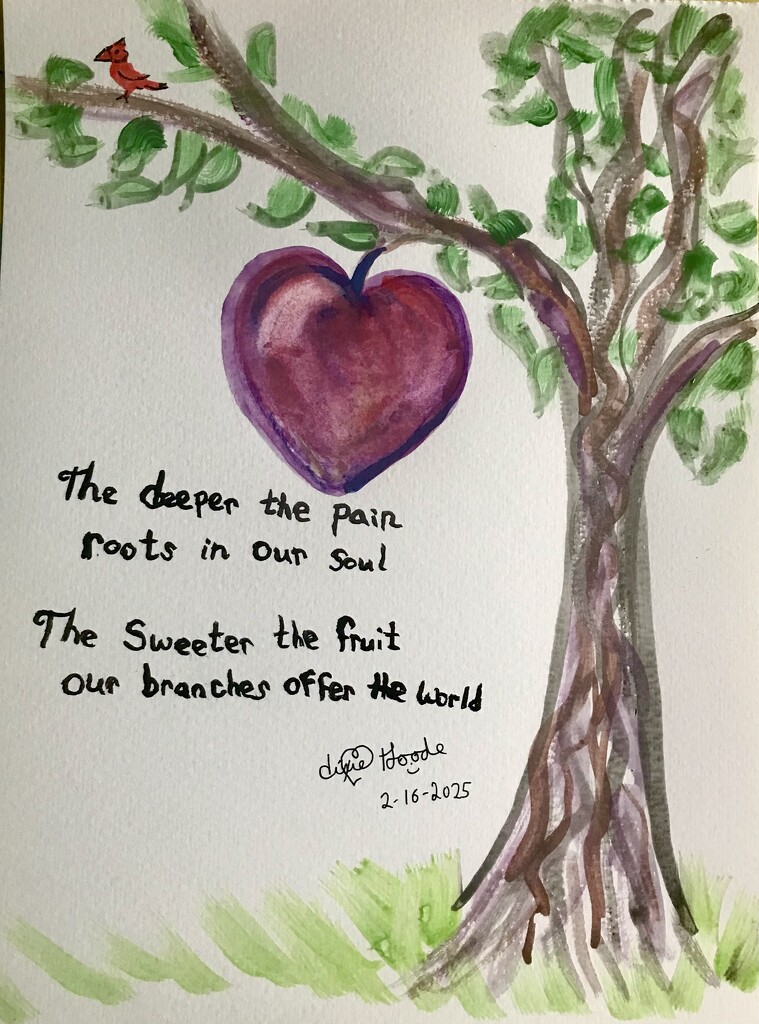 The deeper the pain
roots in our soul
The Sweeter the fruit
our branches offer the world
dixie Goode
2-16-2025